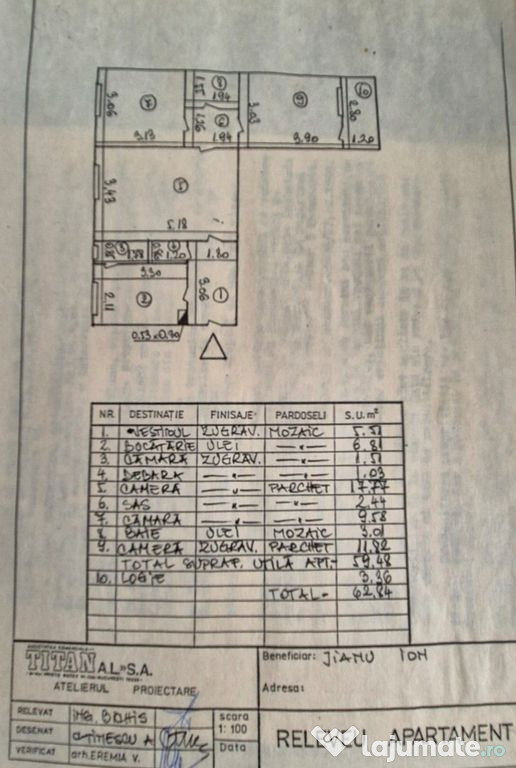 3.06
7
3.13
1.55
8
1.94
1.26
6
1.94
3.03
9
3.90
10
2.80
1.20
3.43
5
5.18
3
4
1.20
1.80
3.30
2.11
2
3.06
1
0.53x0.70
NR. DESTINAȚIE FINISAJE PARDOSELI S.U. m²
1. VESTIBUL ZUGRAV. MOZAIC 5.51
2. BUCĂTĂRIE ULEI —"— 6.81
3. CĂMARĂ ZUGRAV. —"— 1.51
4. DEBARA —"— —"— 1.03
5. CAMERĂ —"— PARCHET 17.77
6. SAS —"— —"— 2.44
7. CĂMARĂ —"— —"— 9.58
8. BAIE ULEI MOZAIC 3.01
9. CAMERĂ ZUGRAV. PARCHET 11.82
TOTAL SUPRAF. UTILĂ APT- 59.48
10. LOGIE 3.36
TOTAL- 62.84
TITAN A.L.» S.A.
ATELIERUL PROIECTARE
Beneficiar: JIANU ION
Adresa:
RELEVAT ING.
DESENAT A.
VERIFICAT arh. EREMIA V.
scara
1:100
Data
RELEVEU APARTAMENT
Lajumate.ro